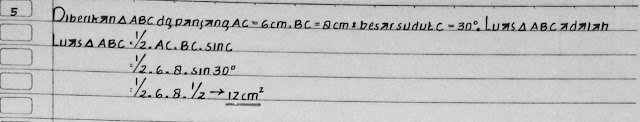 5 Diberikan △ABC dg panjang AC = 6cm. BC = 8cm & besar sudut C = 30°. Luas △ABC adalah
Luas △ABC = 1/2. AC. BC. sin C
= 1/2. 6. 8. sin 30°
= 1/2. 6. 8. 1/2 → 12 cm²